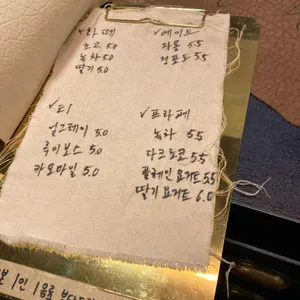 ✓라떼
초코 5.0
녹차 5.0
딸기 5.0
✓에이드
자몽 5.5
청포도 5.5
✓티
얼그레이 5.0
루이보스 5.0
카모마일 5.0
✓프라페
녹차 5.5
다크초코 5.5
플레인 요거트 5.5
딸기 요거트 6.0
1인 1음료